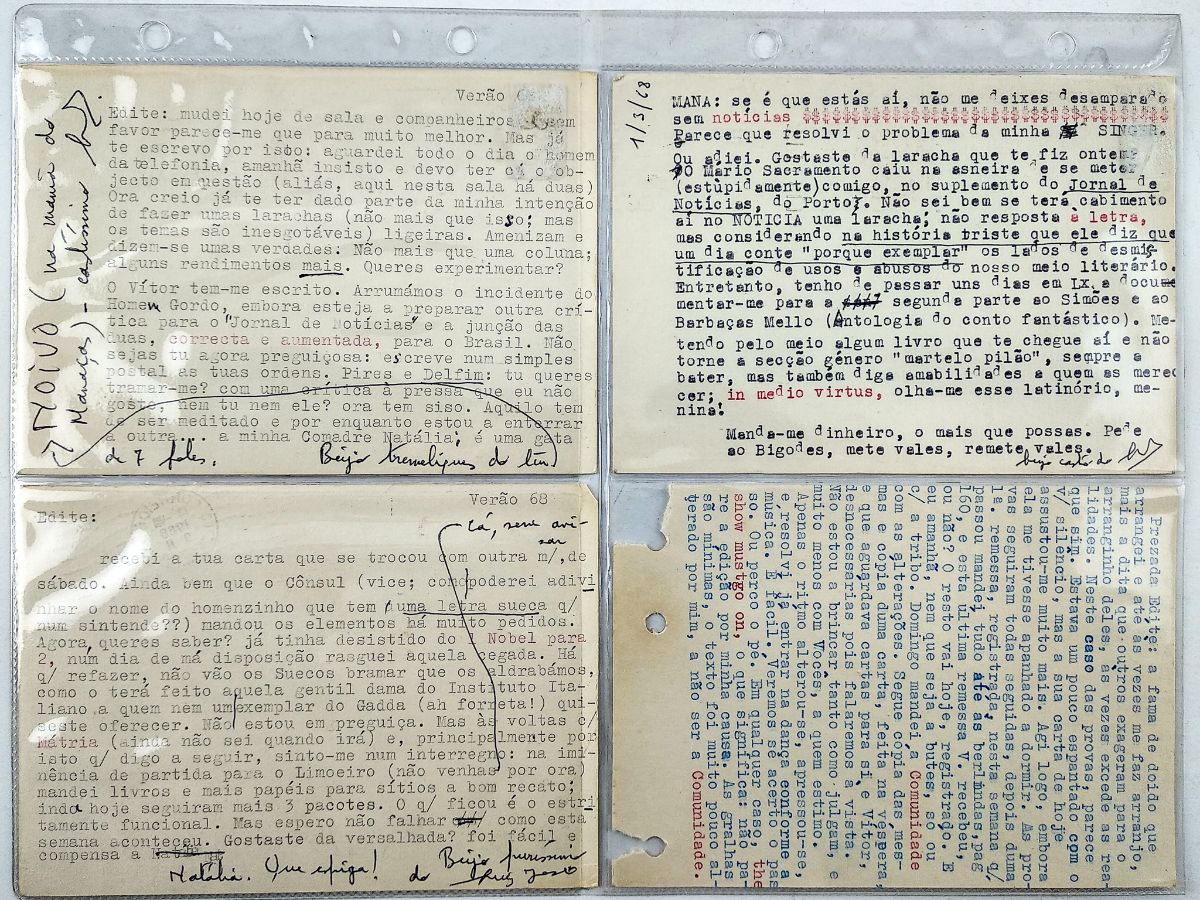 Verão
Edite: mudei hoje de sala e companheiros sem
favor parece-me que para muito melhor. Mas já
te escrevo por isto: aguardei todo o dia o homem
da telefonia, amanhã insisto e devo ter cá o ob-
jecto em questão (aliás, aqui nesta sala há duas)
Ora creio já te ter dado parte da minha intenção
de fazer umas larachas (não mais que isso; mas
os temas são inesgotáveis) ligeiras. Amenizam e
dizem-se umas verdades: Não mais que uma coluna;
alguns rendimentos mais. Queres experimentar?
O Vítor tem-me escrito. Arrumámos o incidente do
Homem Gordo, embora esteja a preparar outra crí-
tica para o "Jornal de Notícias" e a junção das
duas, correcta e aumentada, para o Brasil. Não
sejas tu agora preguiçosa: escreve num simples
postal as tuas ordens. Pires e Delfim: tu queres
tramar-me? com uma crítica à pressa que eu não
goste, nem tu nem ele? ora tem siso. Aquilo tem
de ser meditado e por enquanto estou a enterrar
a outra... a minha Comadre Natália; é uma gata
de 7 foles. Beijo tremeliques do teu
NOIVO (na maneira do
Manaças) - castíssimo
1/3/68
MANA: se é que estás aí, não me deixes desamparado
sem notícias
Parece que resolvi o problema da minha SINGER.
Ou adiei. Gostaste da laracha que te fiz ontem?
O Mário Sacramento caiu na asneira de se meter
(estùpidamente)comigo, no suplemento do Jornal de
Notícias, do Porto. Não sei bem se terá cabimento
aí no NOTICIA uma laracha; não resposta à letra,
mas considerando na história triste que ele diz que
um dia conte "porque exemplar" os lados de desmis-
tificação de usos e abusos do nosso meio literário.
Entretanto, tenho de passar uns dias em Lx. a docume
mentar-me para a segunda parte ao Simões e ao
Barbaças Mello (Antologia do conto fantástico). Me-
tendo pelo meio algum livro que te chegue aí e não
torne a secção género "martelo pilão", sempre a
bater, mas também diga amabilidades a quem as merec
cer; in medio virtus, olha-me esse latinório, me-
nina!
Manda-me dinheiro, o mais que possas. Pede
ao Bigodes, mete vales, remete vales.
beijo casto do
Verão 68
Edite:
Cá, sem avi-
sar
recebi a tua carta que se trocou com outra m/,de
sábado. Ainda bem que o Cônsul (vice; como poderei adivi
nhar o nome do homenzinho que tem uma letra sueca q/
num sintende??) mandou os elementos há muito pedidos.
Agora, queres saber? já tinha desistido do 1 Nobel para
2, num dia de má disposição rasguei aquela cegada. Há
q/ refazer, não vão os Suecos bramar que os aldrabámos,
como o terá feito aquela gentil dama do Instituto Ita-
liano a quem nem um exemplar do Gadda (ah forreta!) qui-
seste oferecer. Não estou em preguiça. Mas às voltas c/
Mátria (ainda não sei quando irá) e, principalmente por
isto q/ digo a seguir, sinto-me num interregno: na imi-
nência de partida para o Limoeiro (não venhas por ora)
mandei livros e mais papéis para sítios a bom recato;
inda hoje seguiram mais 3 pacotes. O q/ ficou é o estri
tamente funcional. Mas espero não falhar como esta
semana aconteceu. Gostaste da versalhada? foi fácil e
compensa a
Natália. Que espiga! do Beijo puríssimo
Luiz José
Prezada Edite: a fama de doido que
arranjei e até às vezes me faz arranjo,
mais a dita que outros exageram para o
arranjinho deles, às vezes excede as rea-
lidades. Neste caso das provas, parece
que sim. Estava um pouco espantado com o
v/ silêncio, mas a sua carta de hoje
assustou-me muito mais. Agi logo, embora
ela me tivesse apanhado a dormir. As pro-
vas seguiram todas seguidas, depois duma
1ª. remessa, registrada, nesta semana q/
passou mandei tudo até às berlindas, pag
160, e esta última remessa V. recebeu,
ou não? O resto vai hoje, registrado. E
eu amanhã, nem que seja a butes, só ou
c/ a tribo. Domingo mandei à Comunidade
com as alterações. Segue cópia das mes-
mas e cópia duma carta, feita na véspera,
e que aguardava carta para si e Vítor,
desnecessárias pois falaremos à vista.
Não estou a brincar tanto como julgam, e
muito menos com Vocês, a quem estimo.
Apenas o ritmo alterou-se, apressou-se,
e resolvi já entrar na dança conforme a
música. É fácil. Veremos se acerto o pas
so. Ou perco o pé. Em qualquer caso, the
show mustgo on, o que significa: não pa-
re a edição por minha causa. As gralhas
são mínimas, o texto foi muito pouco al-
terado por mim, a não ser a Comunidade.